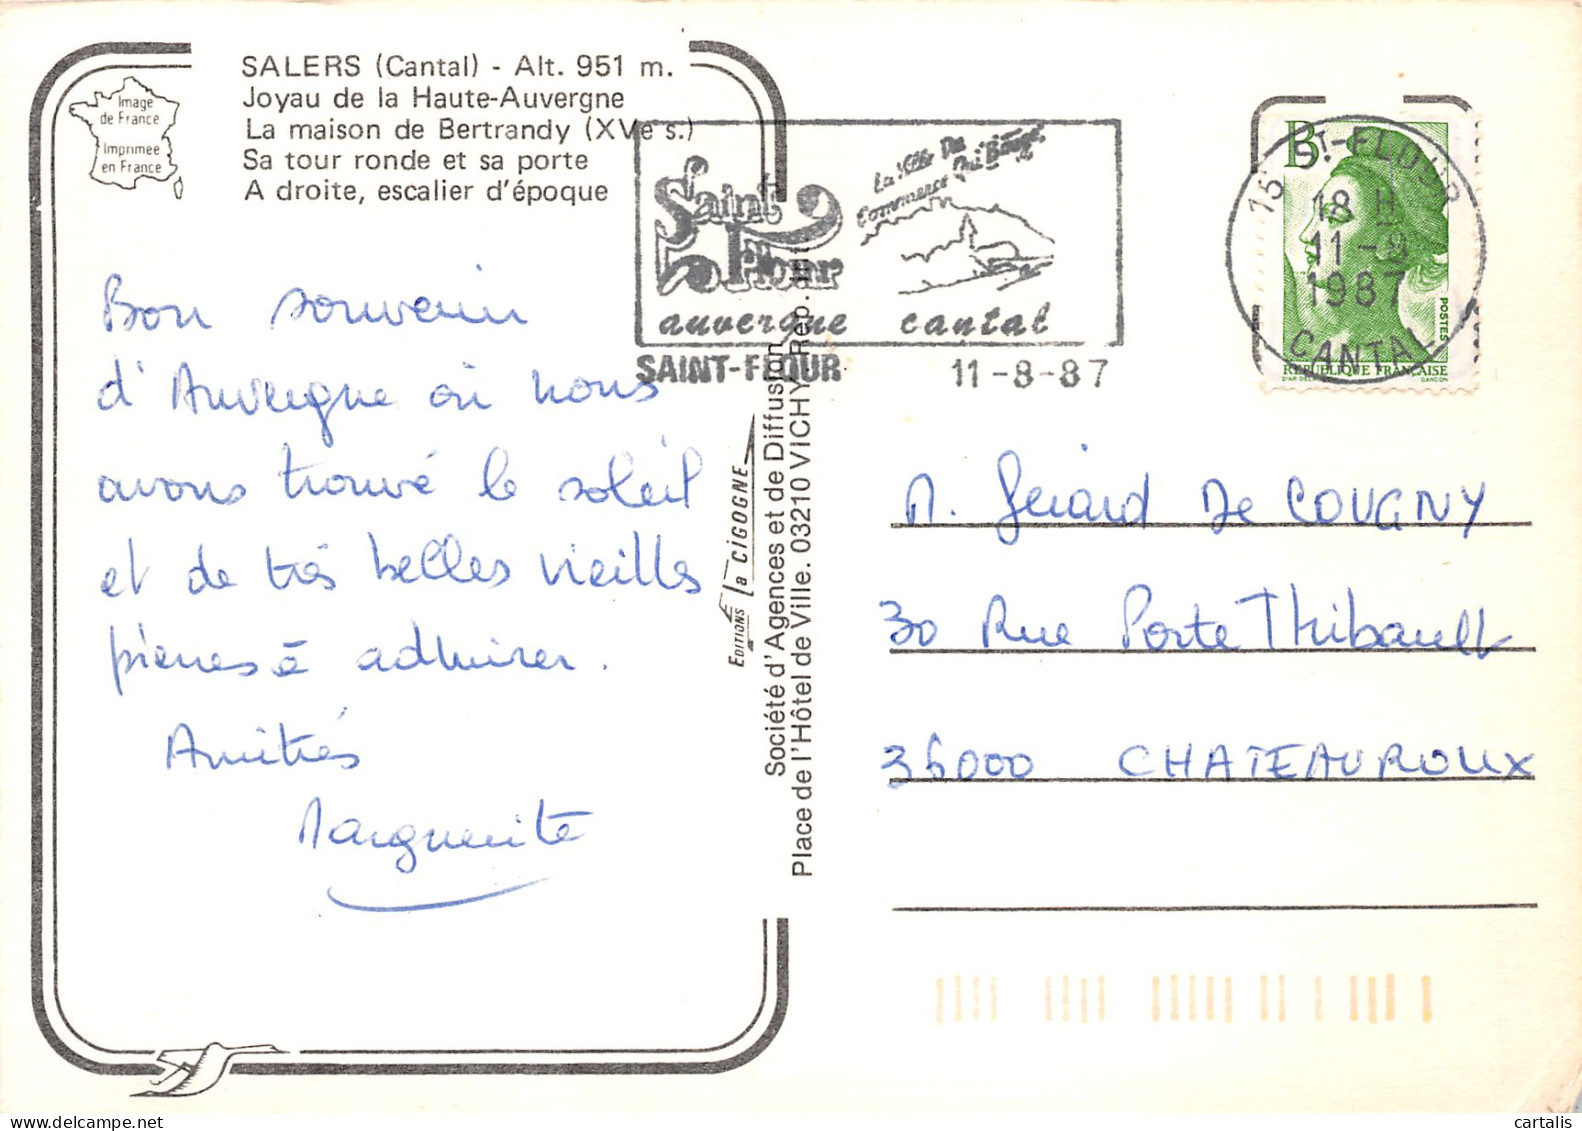 SALERS (Cantal) - Alt. 951 m.
Joyau de la Haute-Auvergne
La maison de Bertrandy (XVe s.)
Sa tour ronde et sa porte
A droite, escalier d'époque
Image
de France
Imprimée
en France
Bon souvenir
d'Auvergne où nous
avons trouvé le soleil
et de très belles vieilles
pierres à admirer.
Amitiés
Marguerite
EDITIONS La CIGOGNE
Société d'Agences et de Diffusion
Place de l'Hôtel de Ville. 03210 VICHY - Rep. int
La Ville Du
Commerce Qui Bouge
Saint
Flour
auvergne cantal
SAINT-FLOUR 11-8-87
15 ST-FLOUR
18 H
11-8
1987
CANTAL
B
POSTES
REPUBLIQUE FRANÇAISE
GANDON
M. Gérard De COUGNY
30 Rue Porte Thibault
36000 CHATEAUROUX
cartalis